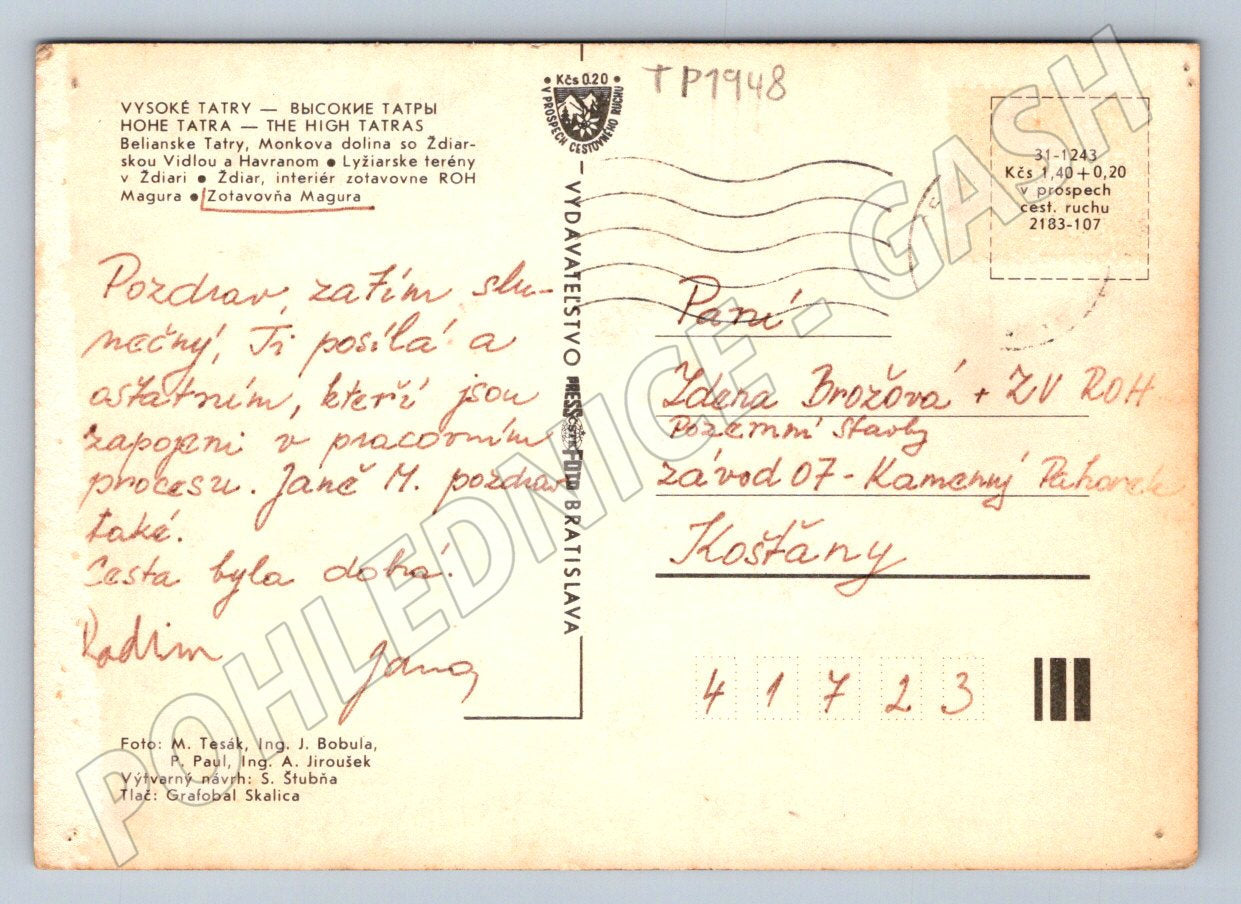 VYSOKÉ TATRY — ВЫСОКИЕ ТАТРЫ
HOHE TATRA — THE HIGH TATRAS
Belianske Tatry, Monkova dolina so Ždiar-
skou Vidlou a Havranom ● Lyžiarske terény
v Ždiari ● Ždiar, interiér zotavovne ROH
Magura ● Zotavovňa Magura
Pozdrav, zatím slu-
nečný, Ti posílá a
ostatním, kteří jsou
zapojeni v pracovním
procesu. Janě M. pozdrav
také.
Cesta byla dobrá.
Radim
Jana
Foto: M. Tesák, Ing. J. Bobula,
P. Paul, Ing. A. Jiroušek
Výtvarný návrh: S. Štubňa
Tlač: Grafobal Skalica
• Kčs 0.20 •
V PROSPECH CESTOVNÉHO RUCHU
VYDAVATEĽSTVO PRESSFOTO BRATISLAVA
TP1948
31-1243
Kčs 1,40 + 0,20
v prospech
cest. ruchu
2183-107
Paní
Zdena Brožová + ZV ROH
Pozemní stavby
závod 07 - Kamenný Pahorek
Košťany
41723
POHLEDNICE - GASH